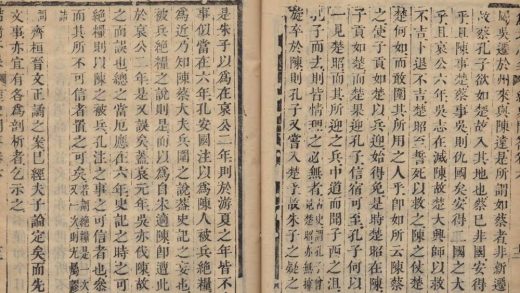 屬吳遷於州來與陳遠是所謂如蔡者非新遷
故蔡孔子欲如楚故入其地也蔡已非國安得
乎且陳事楚蔡事吳則仇國矣安得二國之大
乎且哀六年吳志在滅陳故楚大興師以救
不吉卜退不吉楚昭至誓死以救之陳之使
楚何如而敢圍其所用之人乎卽如所云陳蔡
之使子貢如楚以兵迎始得免是時楚昭在陳
子貢如楚而楚果迎孔子信宿可至孔子何以
一見楚昭而其所迎之兵中道而聞子西之沮
孔子而去則皆情理之必無者
卒於陳則孔子又嘗入楚故朱子之疑之
是朱子以為在哀公二年則於游夏之年皆不
事似當在六年孔安國注以為陳人被兵絕糧
為近乃知陳蔡大夫兵圍之說葢史記之妄也
被兵絕糧之說則是而以爲自宋適陳卽遭此
於哀公二年是又誤矣蓋哀元年吳亦伐陳故
之而誤也總之當厄應在六年史記之時之可
絕糧則以陳之被兵孔注之事之可信者也參
而其所不可信者置之可矣
問齊桓晉文正譎之案已經夫子論定矣而先
文事亦宜有各為剖析者乞示之